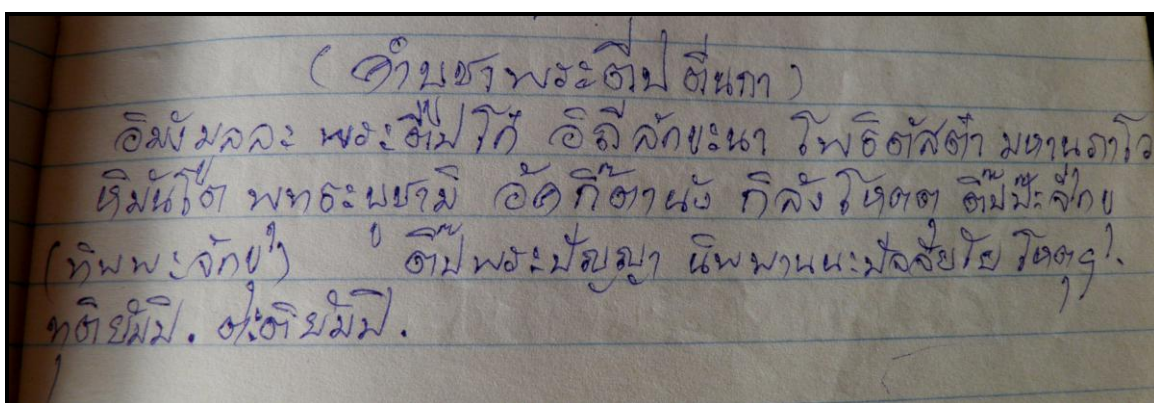 (คำบูชาพระตีปตีนกา)
อิมังมลละ พระตี๊ปโก๋ อิถีลักขะนา โพธิตัสต๋า มหานุภาโว
หิมันโต๊ พุทธะบูชามิ อัคกี๊ต๋านัง กิลังโหตตุ ติ๊ป๊ะจั๋กขุ
(ทิพพะจักขุ๋) ตี๊ปพระปัญญา นิพพานนะปัจจัยโย โหตุฯ.
ทุติยัมปิ. ตะติยัมปิ.